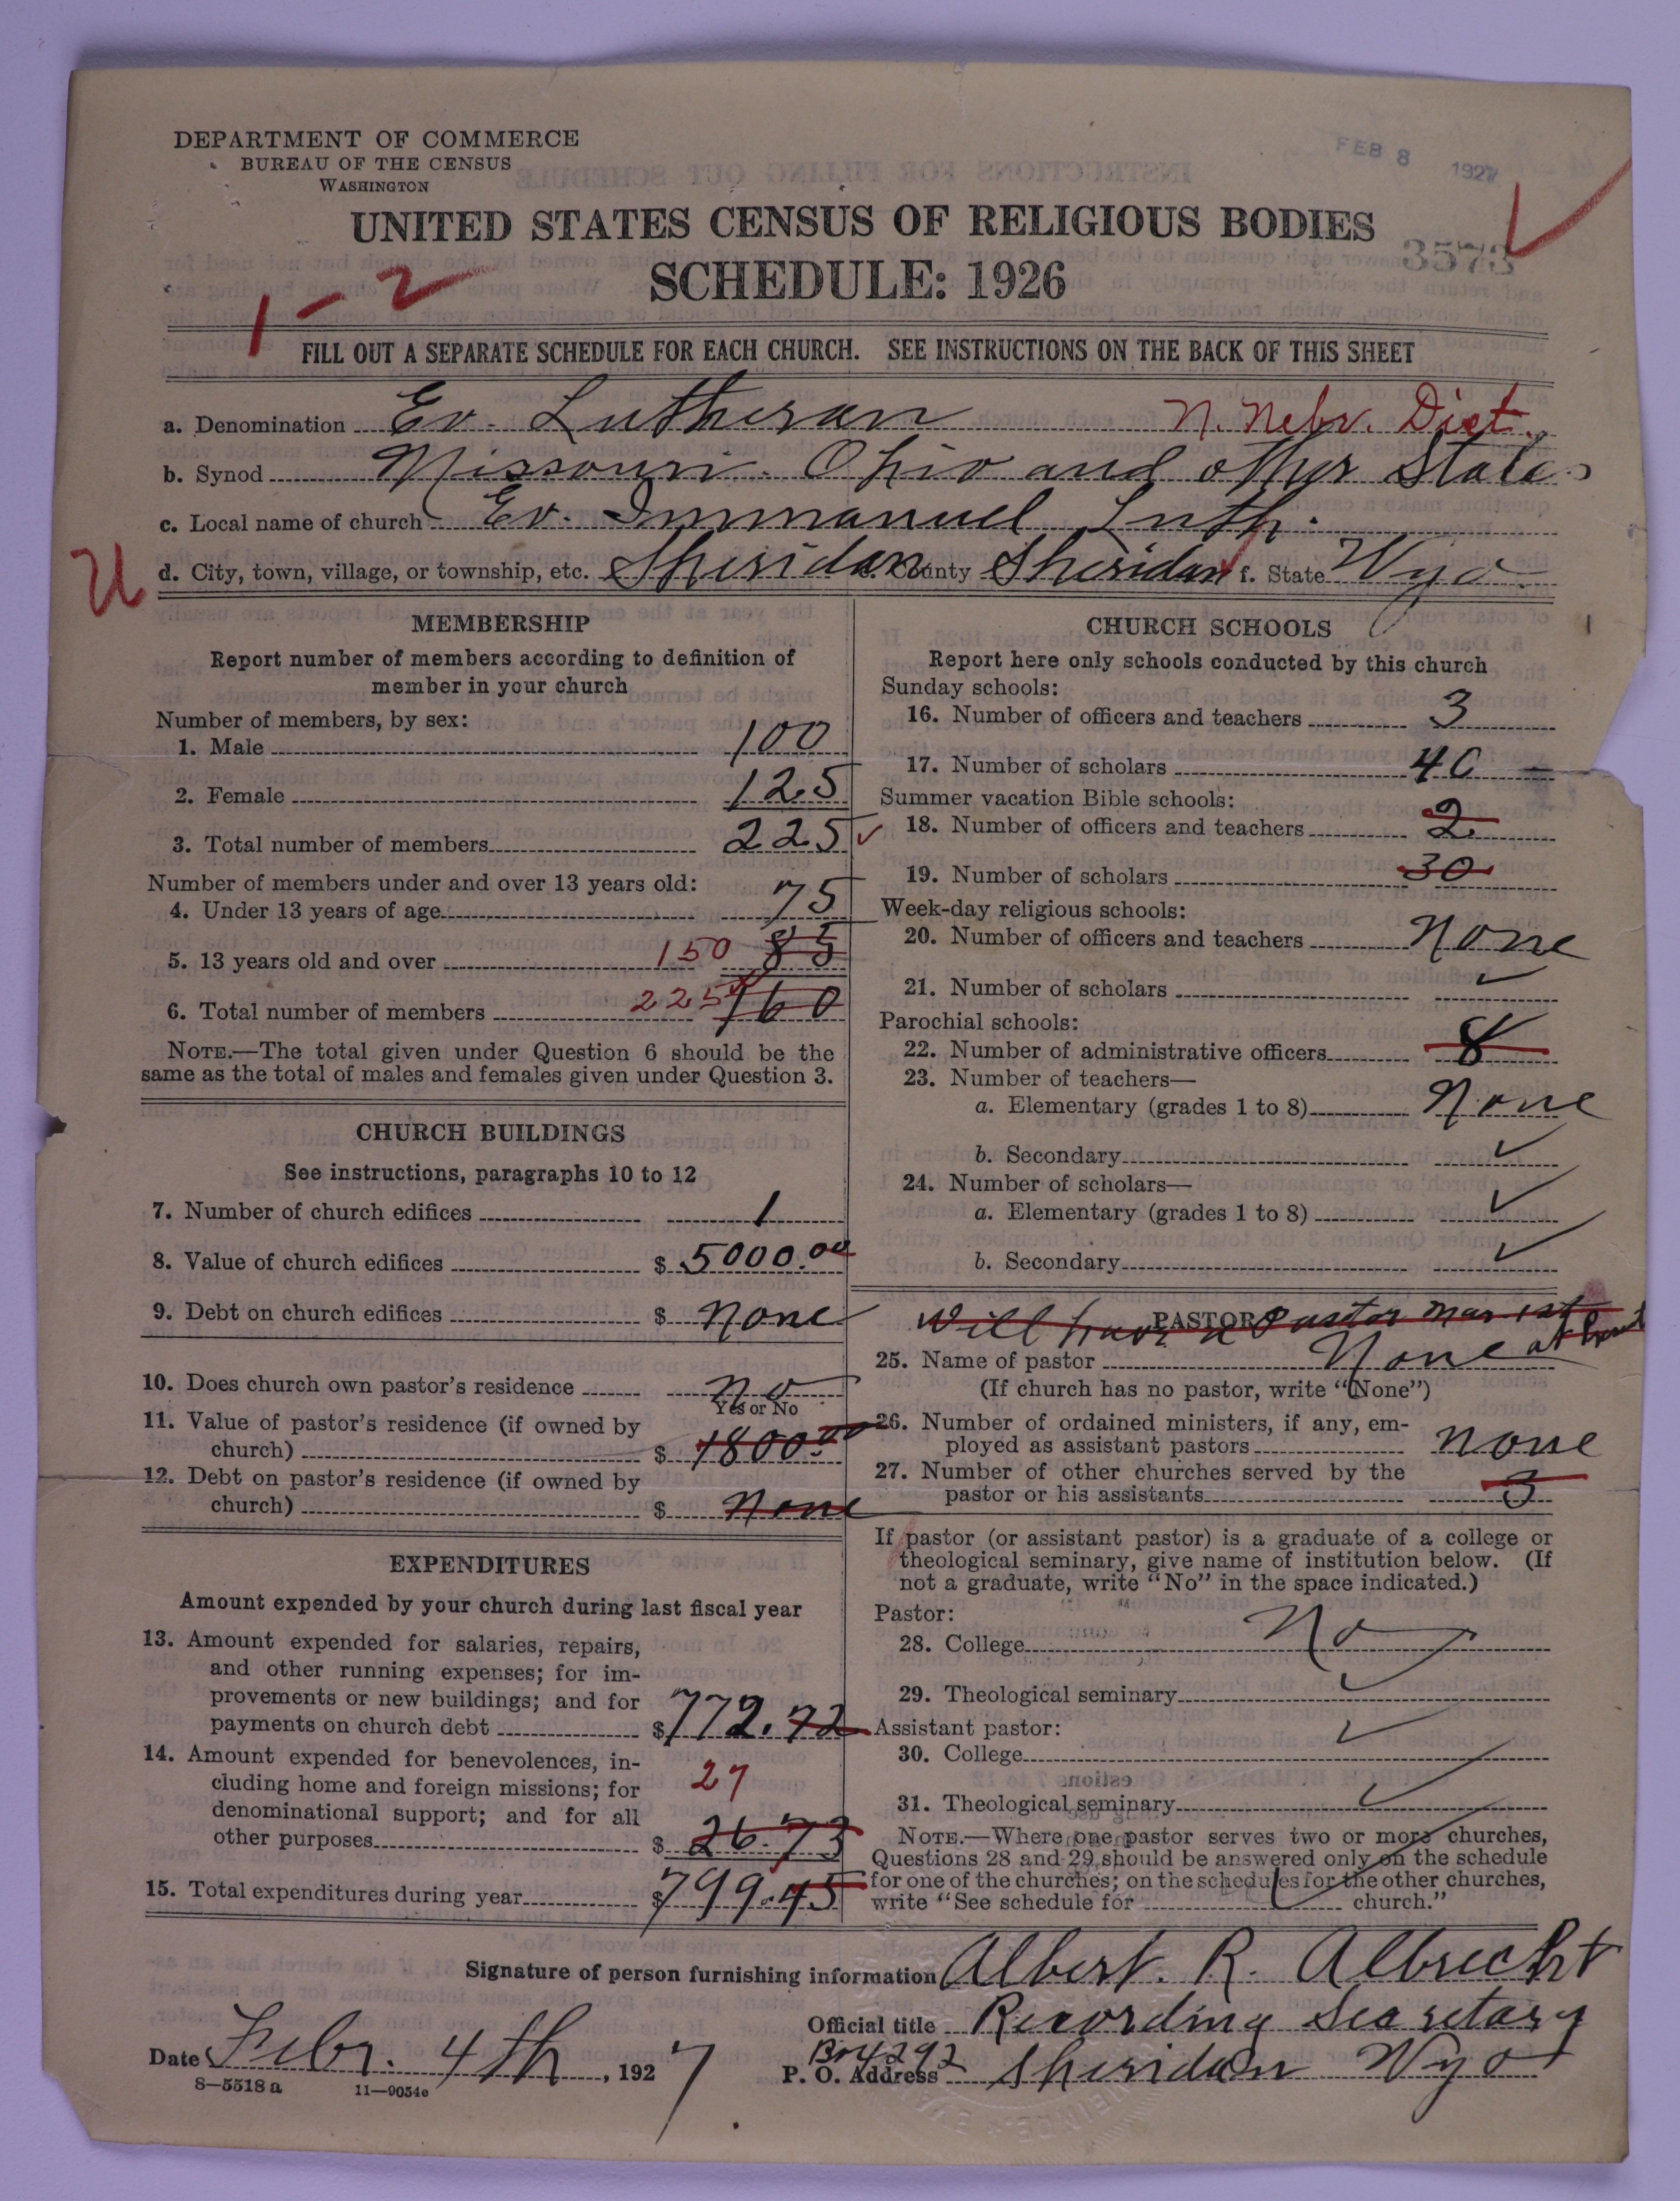 DEPARTMENT OF COMMERCE
BUREAU OF THE CENSUS
WASHINGTON
FEB 8 1927
UNITED STATES CENSUS OF RELIGIOUS BODIES
3573
SCHEDULE: 1926
1-2
FILL OUT A SEPARATE SCHEDULE FOR EACH CHURCH. SEE INSTRUCTIONS ON THE BACK OF THIS SHEET
a. Denomination Ev. Lutheran N. Nebr. Dist.
b. Synod Missouri. Ohio and other States
c. Local name of church Ev. Immanuel Luth.
U
d. City, town, village, or township, etc. Sheridan e. County Sheridan f. State Wyo.
MEMBERSHIP
Report number of members according to definition of
member in your church
Number of members, by sex:
1. Male 100
2. Female 125
3. Total number of members 225 ✓
Number of members under and over 13 years old:
4. Under 13 years of age 75
5. 13 years old and over 150 85
6. Total number of members 225 160
NOTE.—The total given under Question 6 should be the
same as the total of males and females given under Question 3.
CHURCH BUILDINGS
See instructions, paragraphs 10 to 12
7. Number of church edifices 1
8. Value of church edifices $ 5000.00
9. Debt on church edifices $ None
10. Does church own pastor's residence no
Yes or No
11. Value of pastor's residence (if owned by
church) $ 1800.00
12. Debt on pastor's residence (if owned by
church) $ None
EXPENDITURES
Amount expended by your church during last fiscal year
13. Amount expended for salaries, repairs,
and other running expenses; for im-
provements or new buildings; and for
payments on church debt $ 772.72
14. Amount expended for benevolences, in-
cluding home and foreign missions; for
27
denominational support; and for all
other purposes $ 26.73
15. Total expenditures during year $ 799.45
CHURCH SCHOOLS
Report here only schools conducted by this church
Sunday schools:
16. Number of officers and teachers 3
17. Number of scholars 40
Summer vacation Bible schools:
18. Number of officers and teachers 2
19. Number of scholars 30
Week-day religious schools:
20. Number of officers and teachers None
21. Number of scholars ✓
Parochial schools:
22. Number of administrative officers 8
23. Number of teachers—
a. Elementary (grades 1 to 8) None
b. Secondary ✓
24. Number of scholars—
a. Elementary (grades 1 to 8) ✓
b. Secondary ✓
PASTOR
Will have a Pastor Mar 1st
25. Name of pastor None at
(If church has no pastor, write "None")
26. Number of ordained ministers, if any, em-
ployed as assistant pastors none
27. Number of other churches served by the
pastor or his assistants 3
If pastor (or assistant pastor) is a graduate of a college or
theological seminary, give name of institution below. (If
not a graduate, write "No" in the space indicated.)
Pastor:
28. College No
29. Theological seminary ✓
Assistant pastor:
30. College ✓
31. Theological seminary ✓
NOTE.—Where one pastor serves two or more churches,
Questions 28 and 29 should be answered only on the schedule
for one of the churches; on the schedules for the other churches,
write "See schedule for church."
Signature of person furnishing information Albert. R. Albrecht
Official title Recording Secretary
Date Febr. 4th, 1927
Box 292
P. O. Address Sheridan Wyo
8—5518a 11—9054c